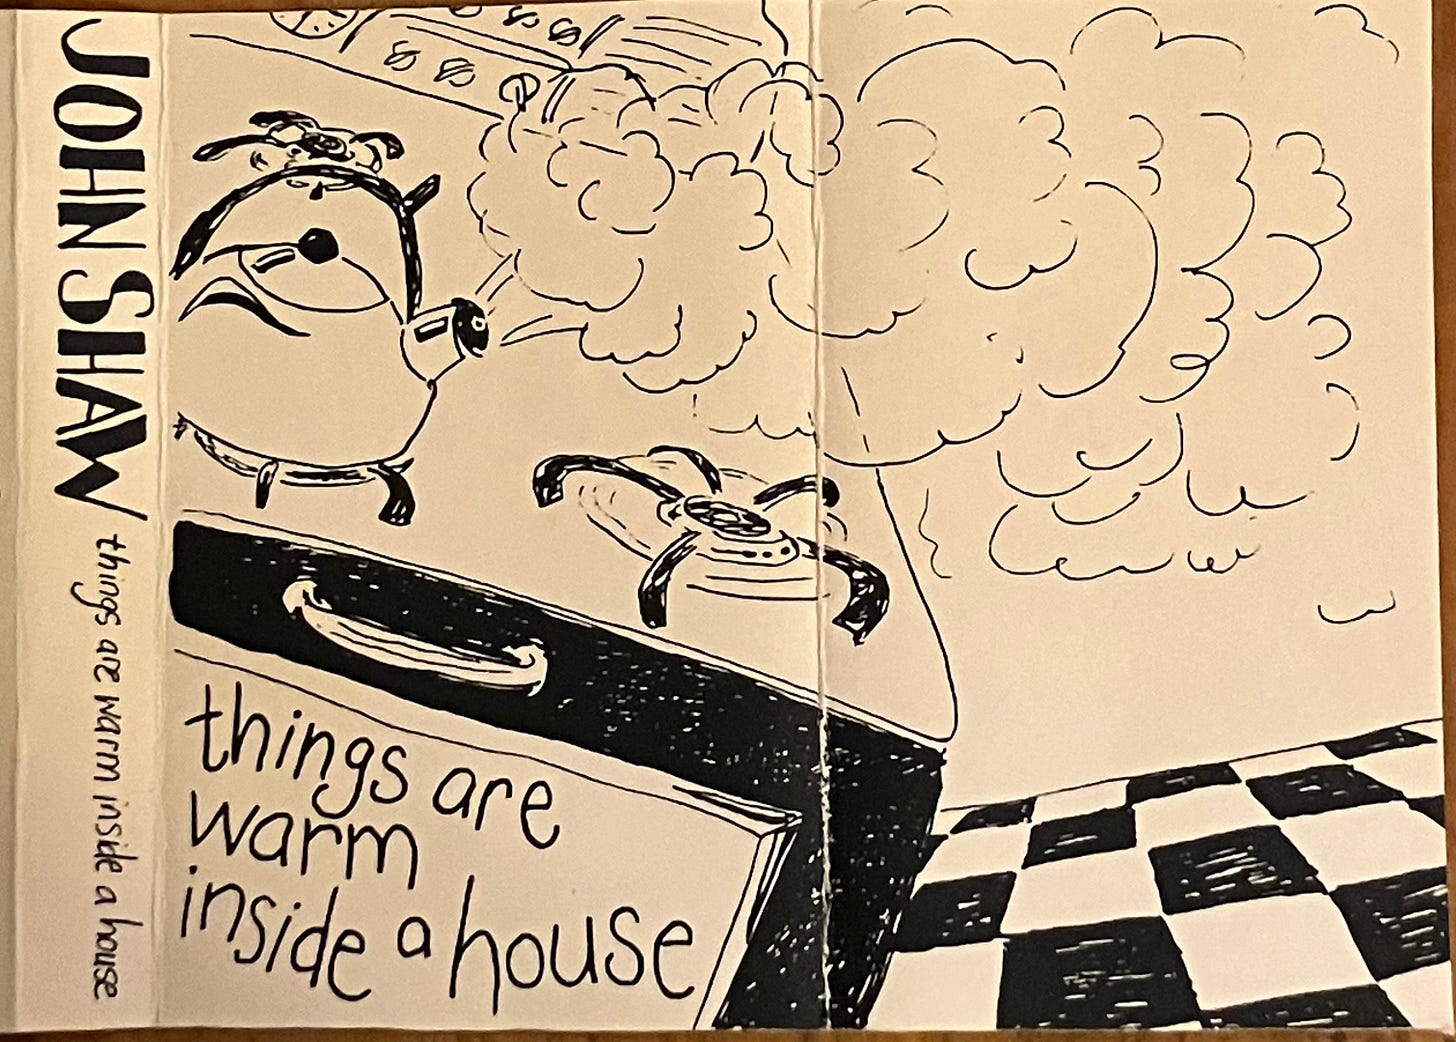 JOHN SHAW things are warm inside a house
things are
warm
inside a house